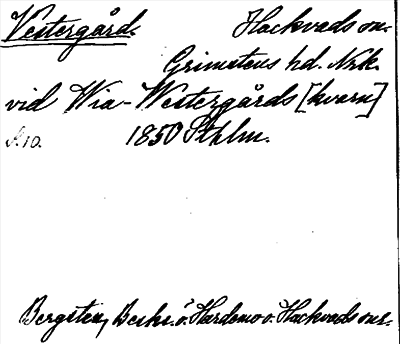 Vestergård. Hackvads sn.
Grimstens hd. Nrk.
vid Wia-Westergårds [kvarn]
S. 10. 1850 Sthlm.
Bergsten, Beskr. ö. Hardemo o. Hackvads snr.